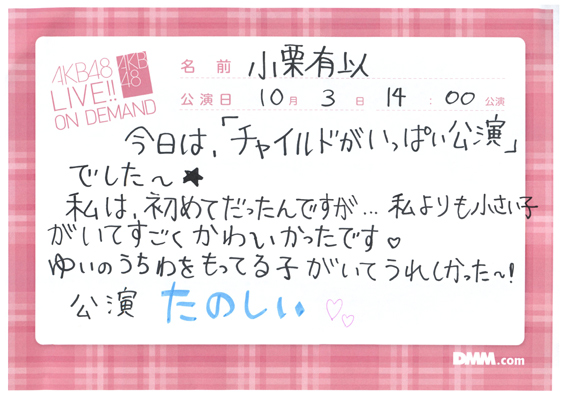 AKB48
LIVE!!
ON DEMAND
AKB
48
名前 小栗有以
公演日 10月 3日 14:00公演
今日は、「チャイルドがいっぱい公演」
でした〜★
私は、初めてだったんですが…私よりも小さい子
がいてすごくかわいかったです♡
ゆいのうちわをもってる子がいてうれしかった〜!
公演 たのしい ♡♡
DMM.com